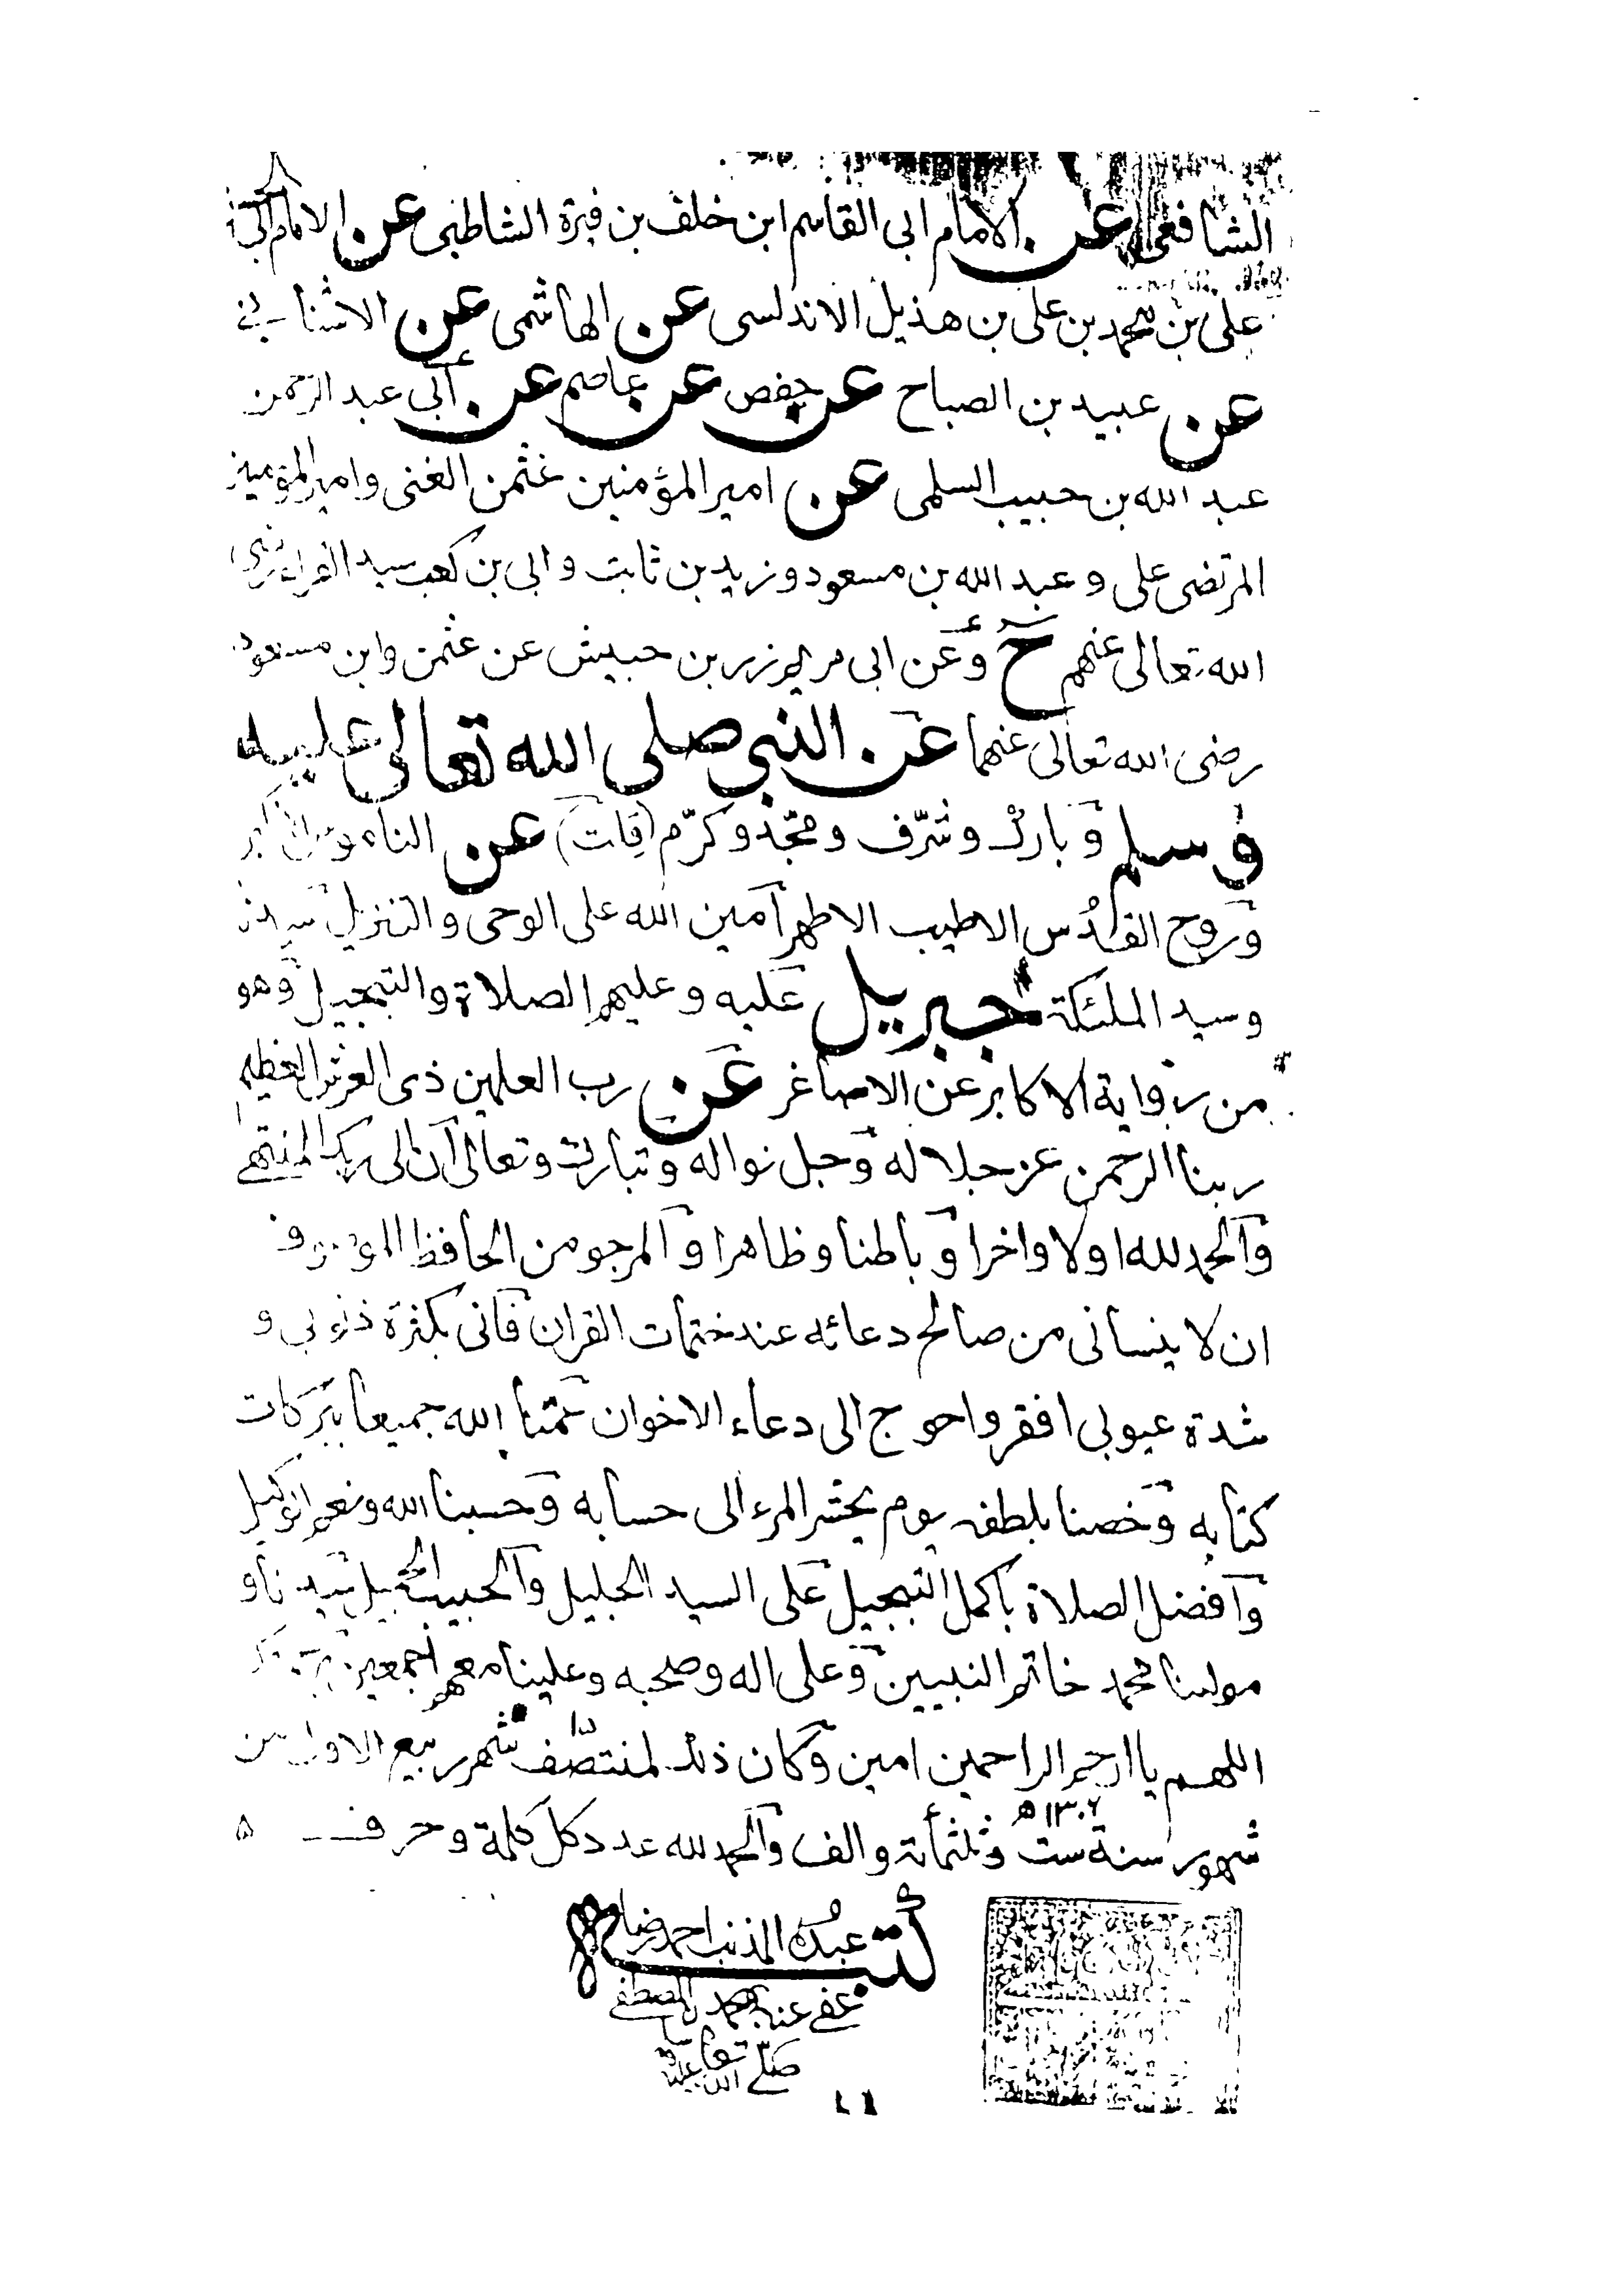 الشافعی عن الامام ابی القاسم ابن خلف بن فیرة الشاطبی عن الامام ابی
علی بن محمد بن علی بن هذیل الاندلسی عن الهاشمی عن الاشنانی
عن عبید بن الصباح عن حفص عن عاصم عن أبی عبد الرحمن
عبد الله بن حبیب السلمی عن امیر المؤمنین عثمن الغنی وامیر المؤمنین
المرتضی علی و عبد الله بن مسعود و زید بن ثابت و ابی بن کعب سید القراء رضی
الله تعالی عنهم ح وعن ابی مریم زر بن حبیش عن عثمن وابن مسعود
رضی الله تعالی عنهما عن النبی صلی الله تعالی علیه
وسلم و بارك وشرّف ومجّد وکرّم عن
وروح القدس الاطیب الاطهر آمین الله علی الوحی والتنزیل
وسید الملئکة جبریل علیه و علیهم الصلاة والتبجیل وهو
من روایة الاکابر عن الاصاغر عن رب العلمین ذی العرش العظیم
ربنا الرحمن عز جلاله وجل نواله وتبارك وتعالی ان الی ربك المنتهی
والحمد لله اولا واخرا وباطنا وظاهرا والمرجو من الحافظ
ان لا ینسانی من صالح دعائه عند ختمات القران فانی بکثرة ذنوبی و
شدة عیوبی افقر واحوج الی دعاء الاخوان عمّنا الله جمیعا ببرکات
کتابه وخصنا بلطفه یوم یحشر المرء الی حسابه وحسبنا الله ونعم الوکیل
وافضل الصلاة باکمل التبجیل علی السید الجلیل والحبیب الجمیل سیدنا و
مولىنا محمد خاتم النبیین وعلی اله وصحبه وعلینا معهم اجمعین
اللهم یا ارحم الراحمین امین وکان ذلك لمنتصف شهر ربیع الاول من
شهور سنة ست وثلثمأئة والف ۱۳۰۶ه والحمد لله عدد کل کلمة وحرف
کتبه عبده المذنب احمد رضا
عفی عنه بمحمدن المصطفی
صلی الله تعالی علیه